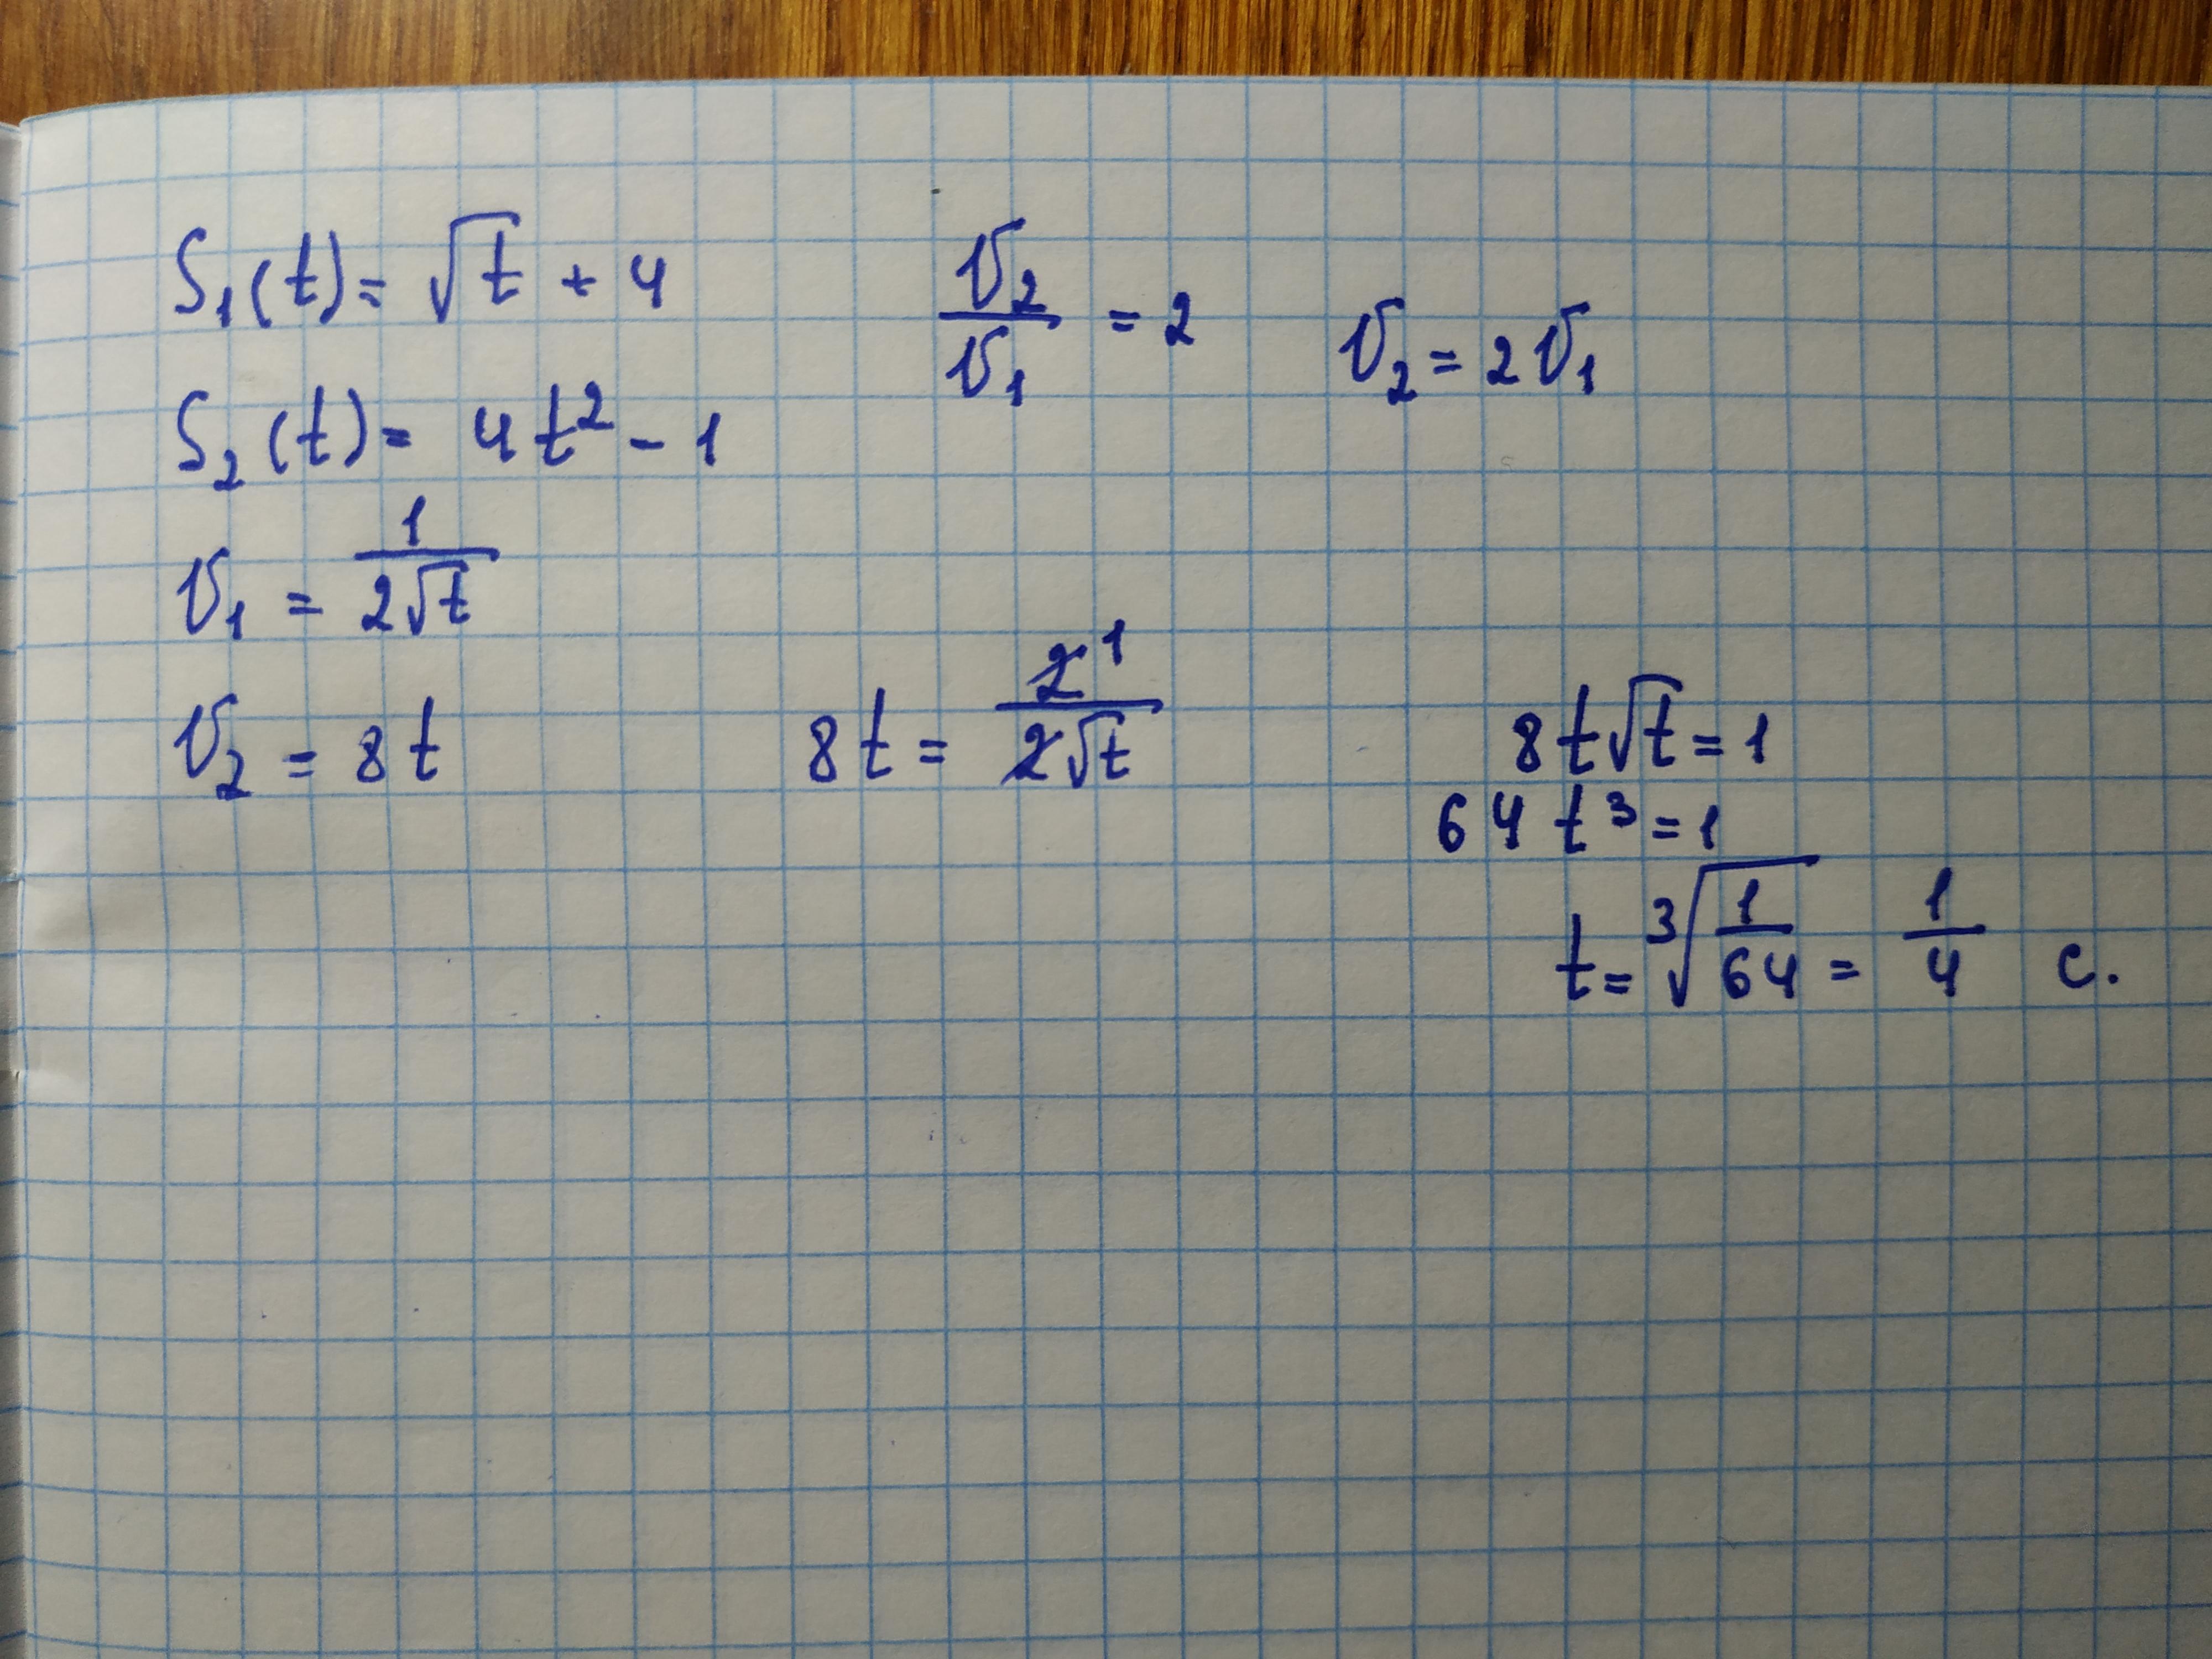 S₁(t) = √t + 4
S₂(t) = 4t² - 1
v₁ = 1/(2√t)
v₂ = 8t
v₂/v₁ = 2
v₂ = 2v₁
8t = 2¹/(2√t)
8t√t = 1
64t³ = 1
t = ³√(1/64) = 1/4 с.